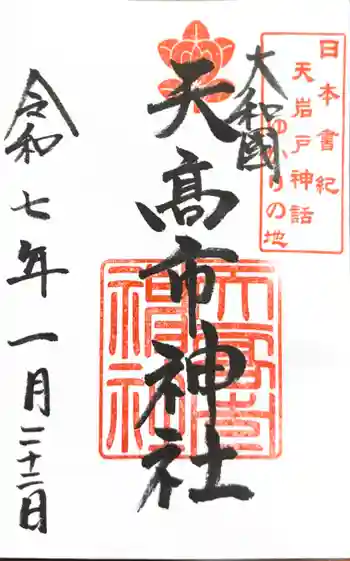 日本書紀
天岩戸神話
ゆかりの地
大和國
天高市神社
天高市神社
令和七年一月二十二日